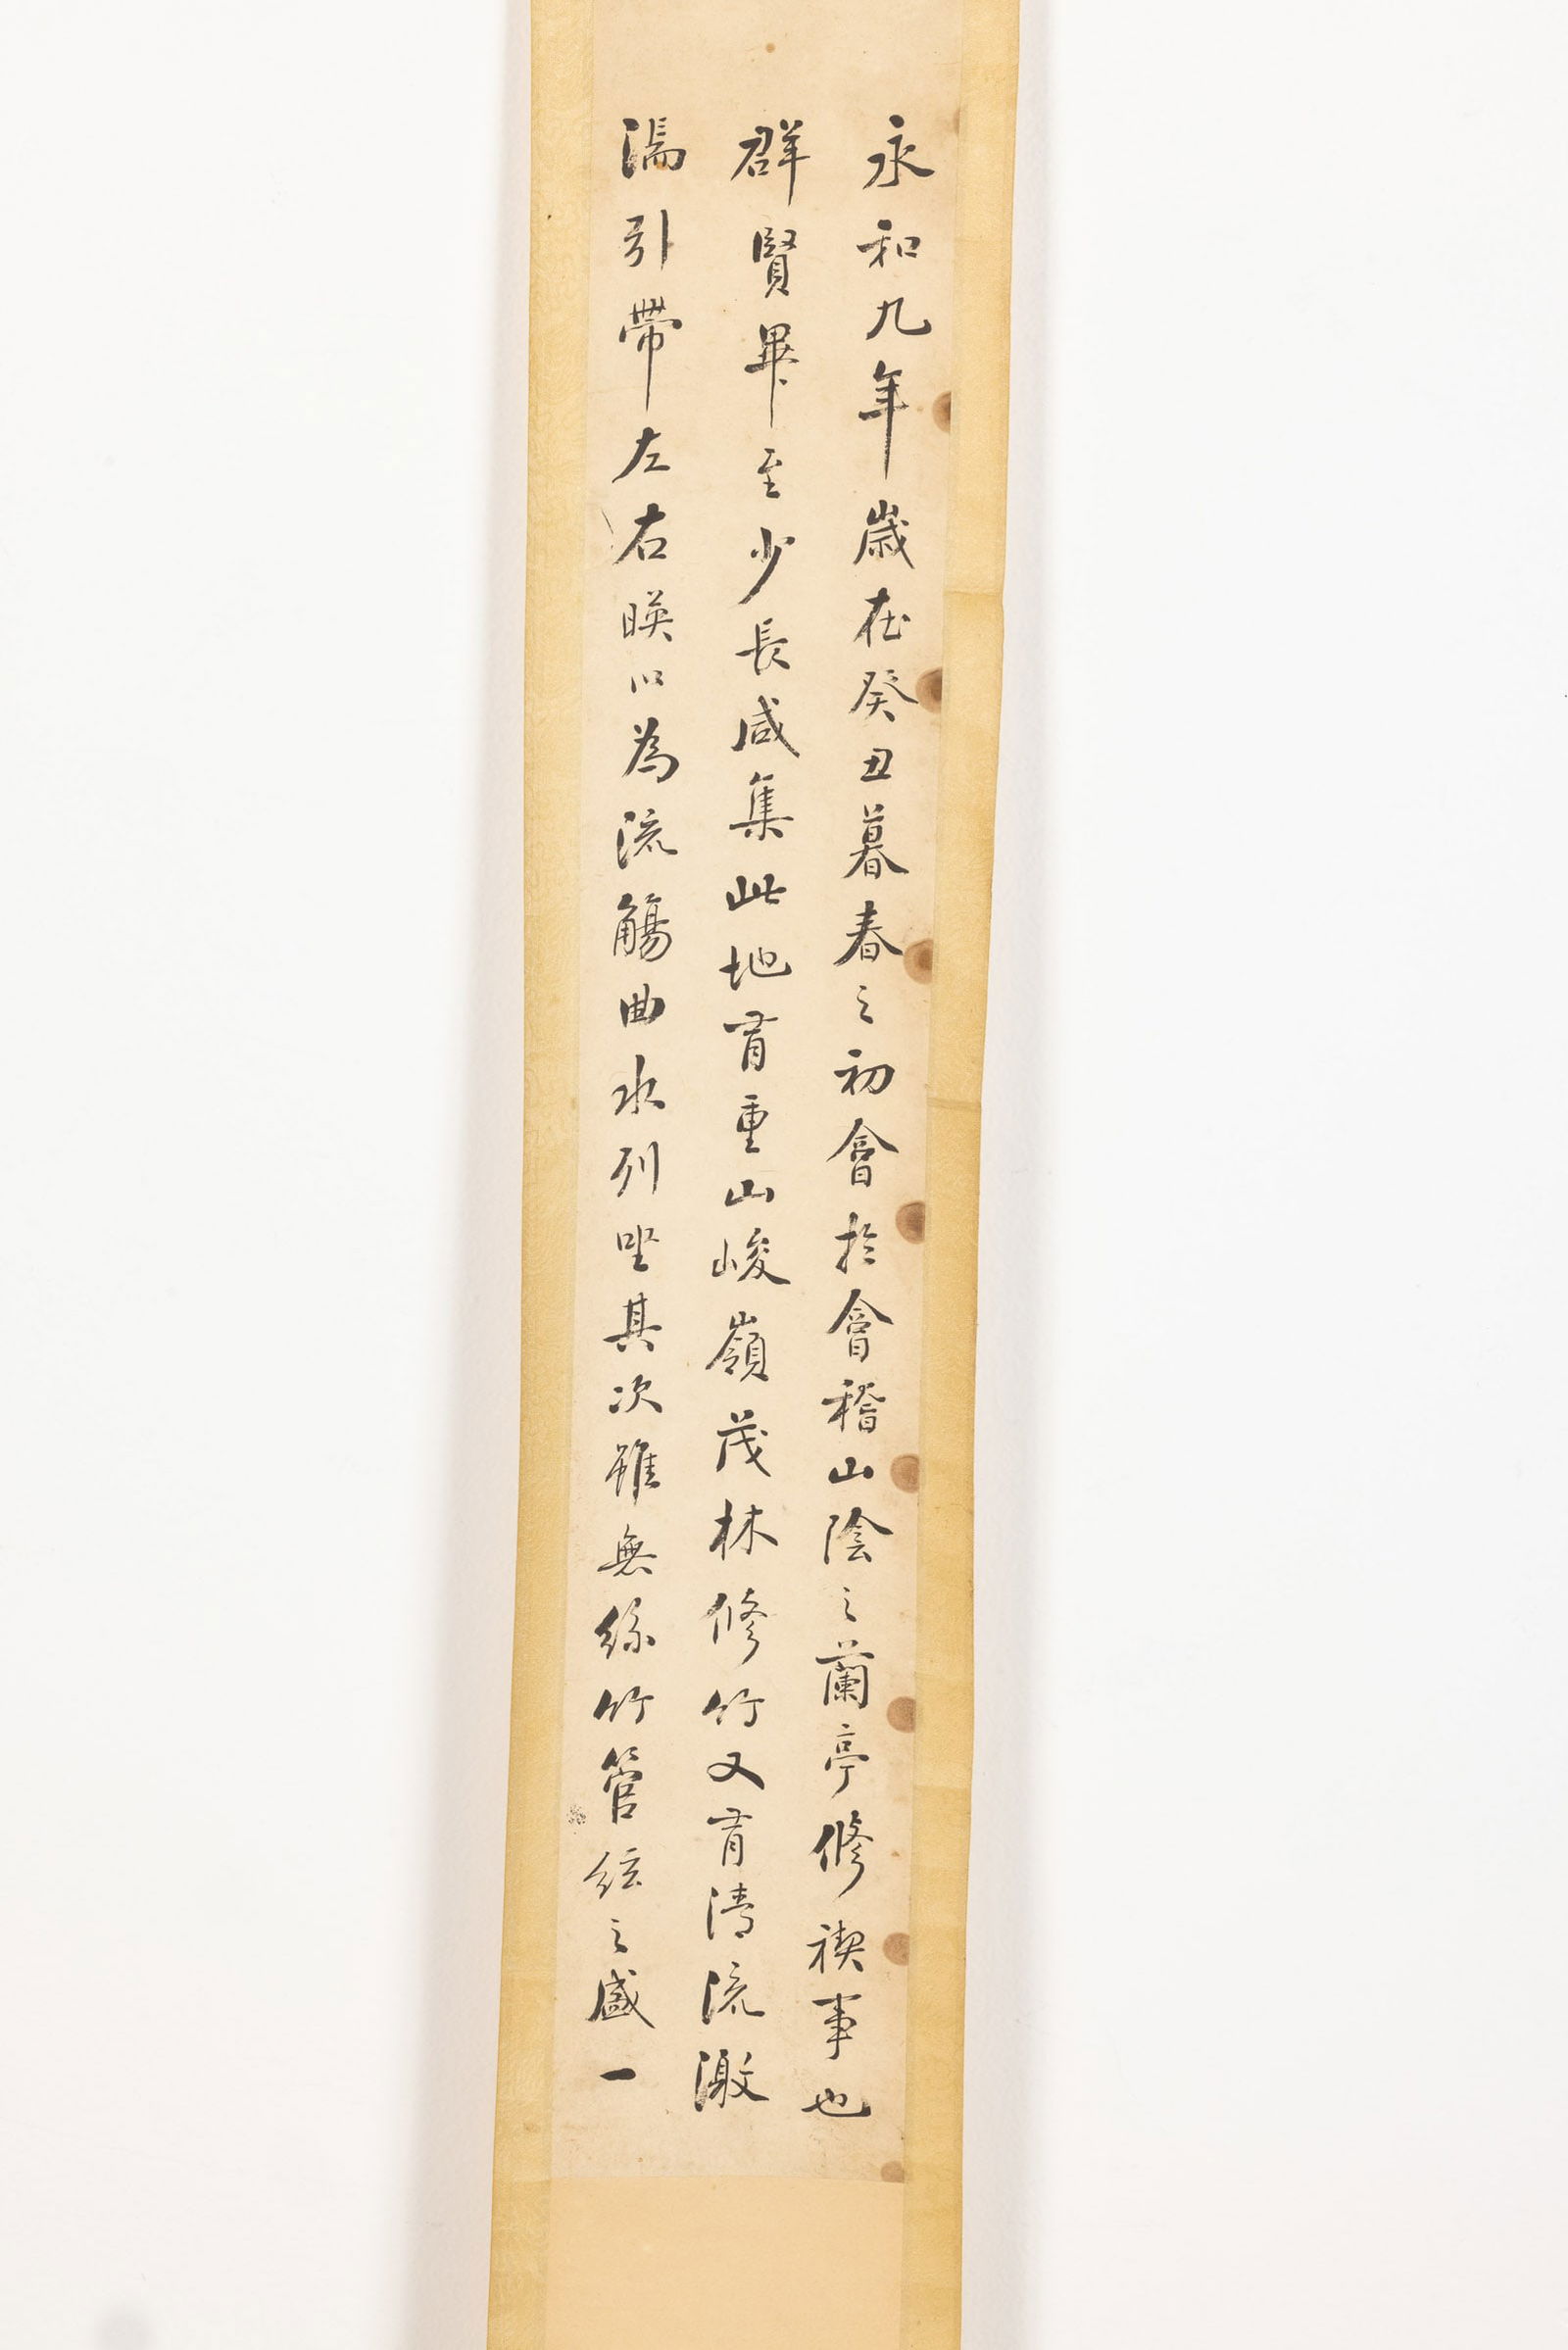 永和九年歲在癸丑暮春之初會於會稽山陰之蘭亭修禊事也
群賢畢至少長咸集此地有重山峻嶺茂林修竹又有清流激
湍引帶左右暎以為流觴曲水列坐其次雖無絲竹管絃之盛一